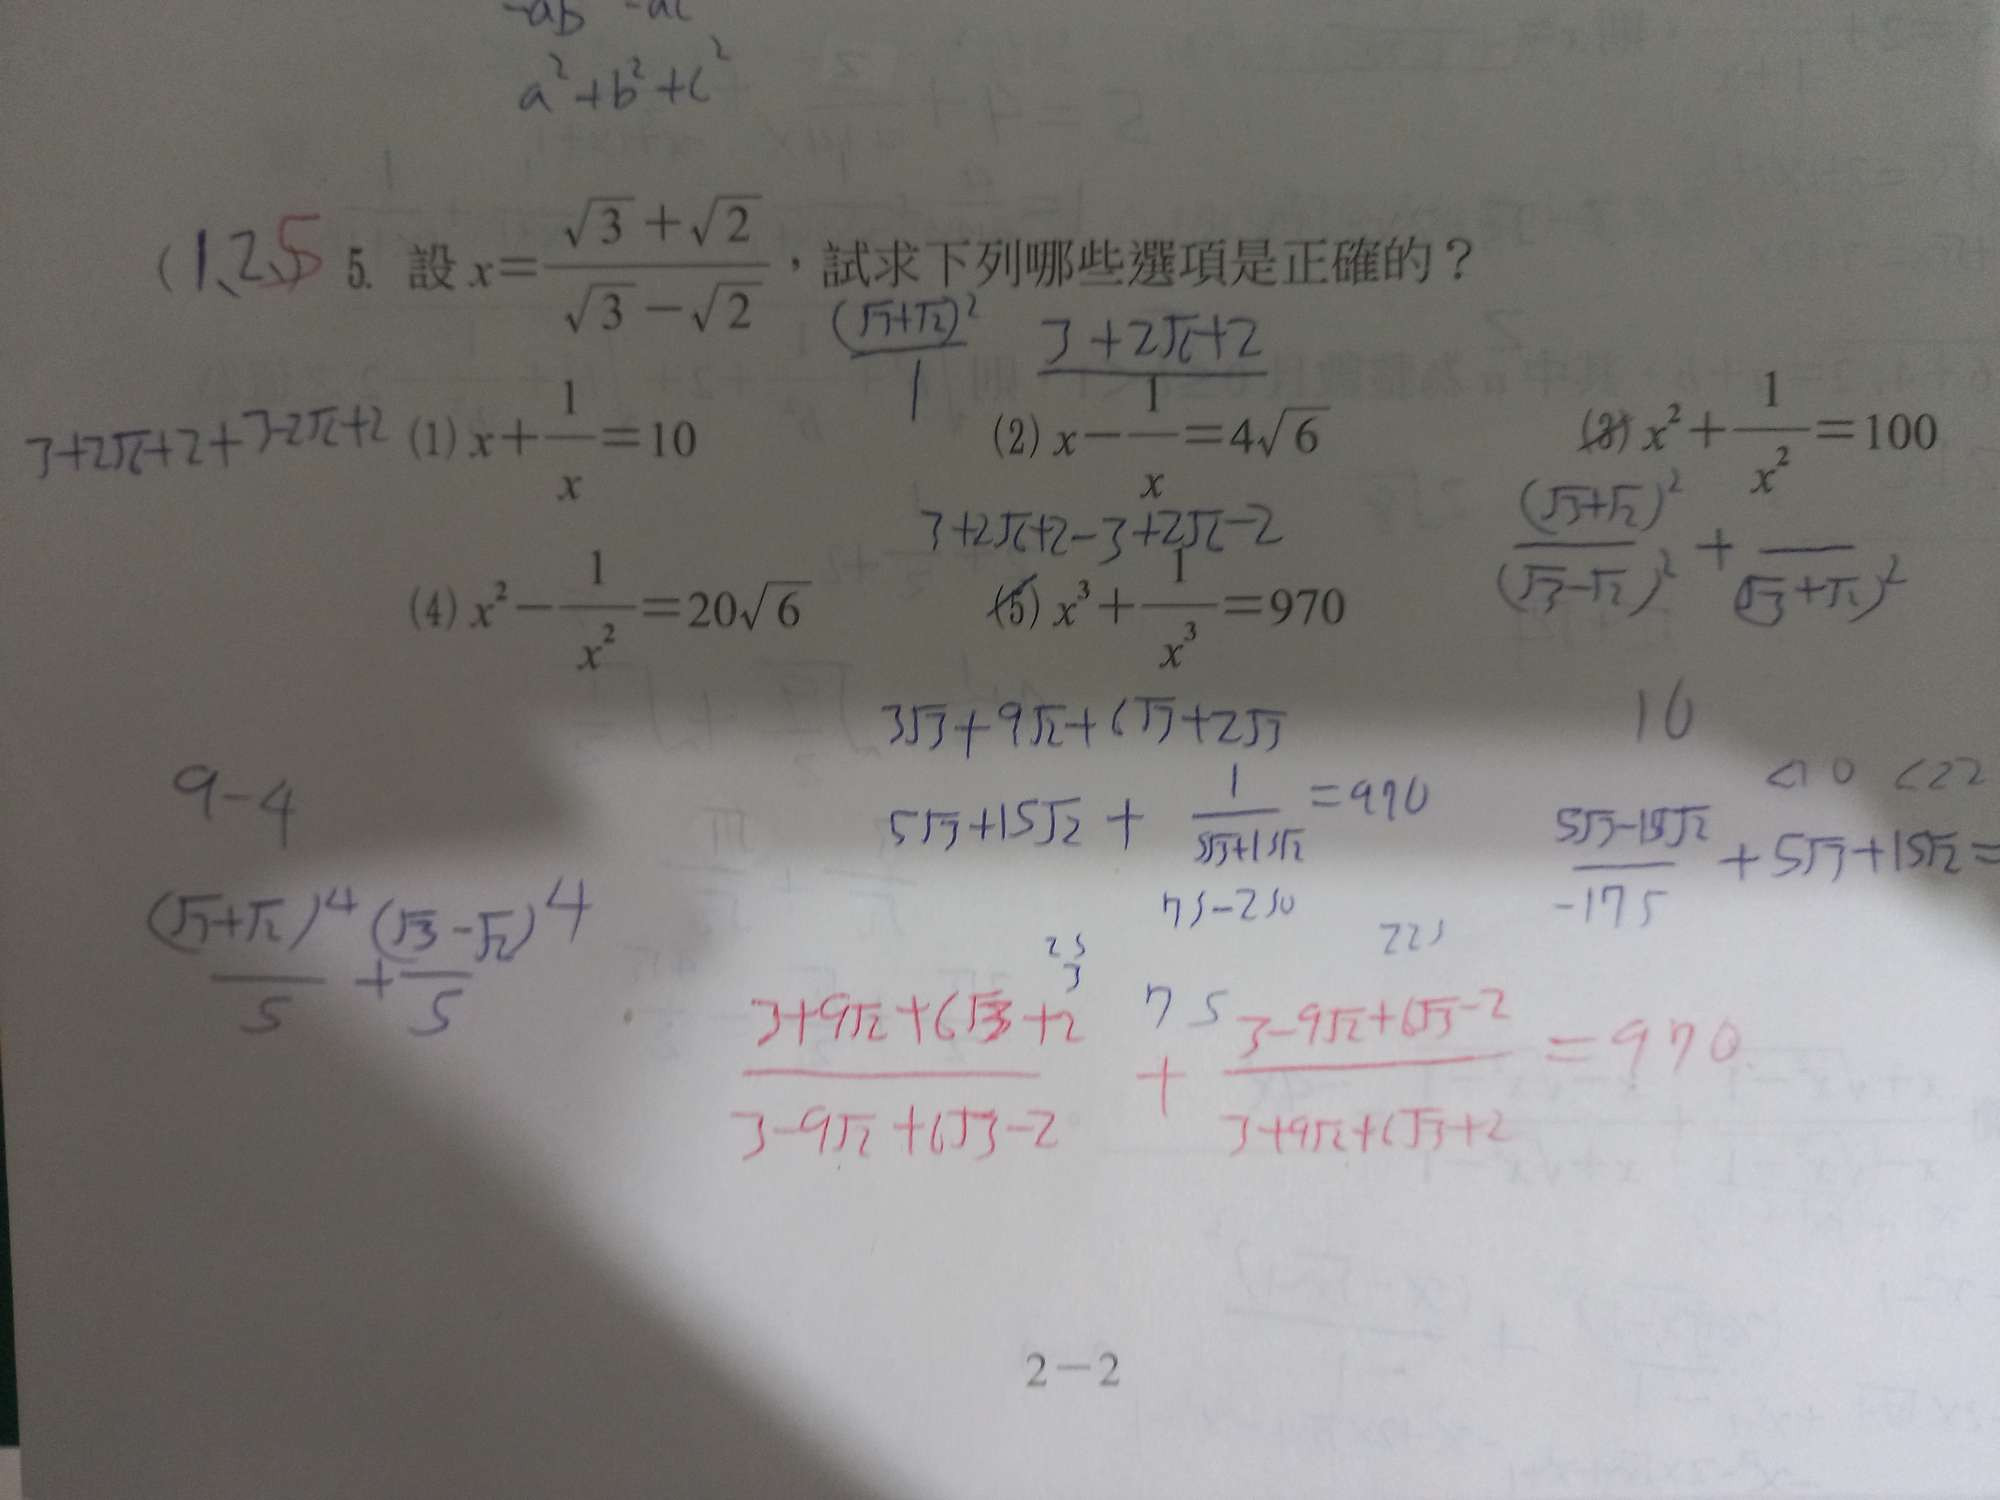 -ab -ac
a²+b²+c²
(1、2、5 5. 設 x=(√3+√2)/(√3-√2)，試求下列哪些選項是正確的？
(√3+√2)²/1 (3+2√6+2)/1
3+2√6+2+3-2√6+2 (1) x+1/x=10 (2) x-1/x=4√6 (3) x²+1/x²=100
3+2√6+2-3+2√6-2 (√3+√2)²/(√3-√2)² + /(√3+√2)²
(4) x²-1/x²=20√6 (5) x³+1/x³=970
3√3+9√2+6√3+2√3 10
9-4 <10 <22
5√3+15√2+1/(5√3+15√2)=970 (5√3-15√2)/-175+5√3+15√2=
75-250 225
(√3+√2)⁴/5+(√3-√2)⁴/5
25
3
75
(3+9√2+6√3+2)/(3-9√2+6√3-2)+(3-9√2+6√3-2)/(3+9√2+6√3+2)=970
2-2